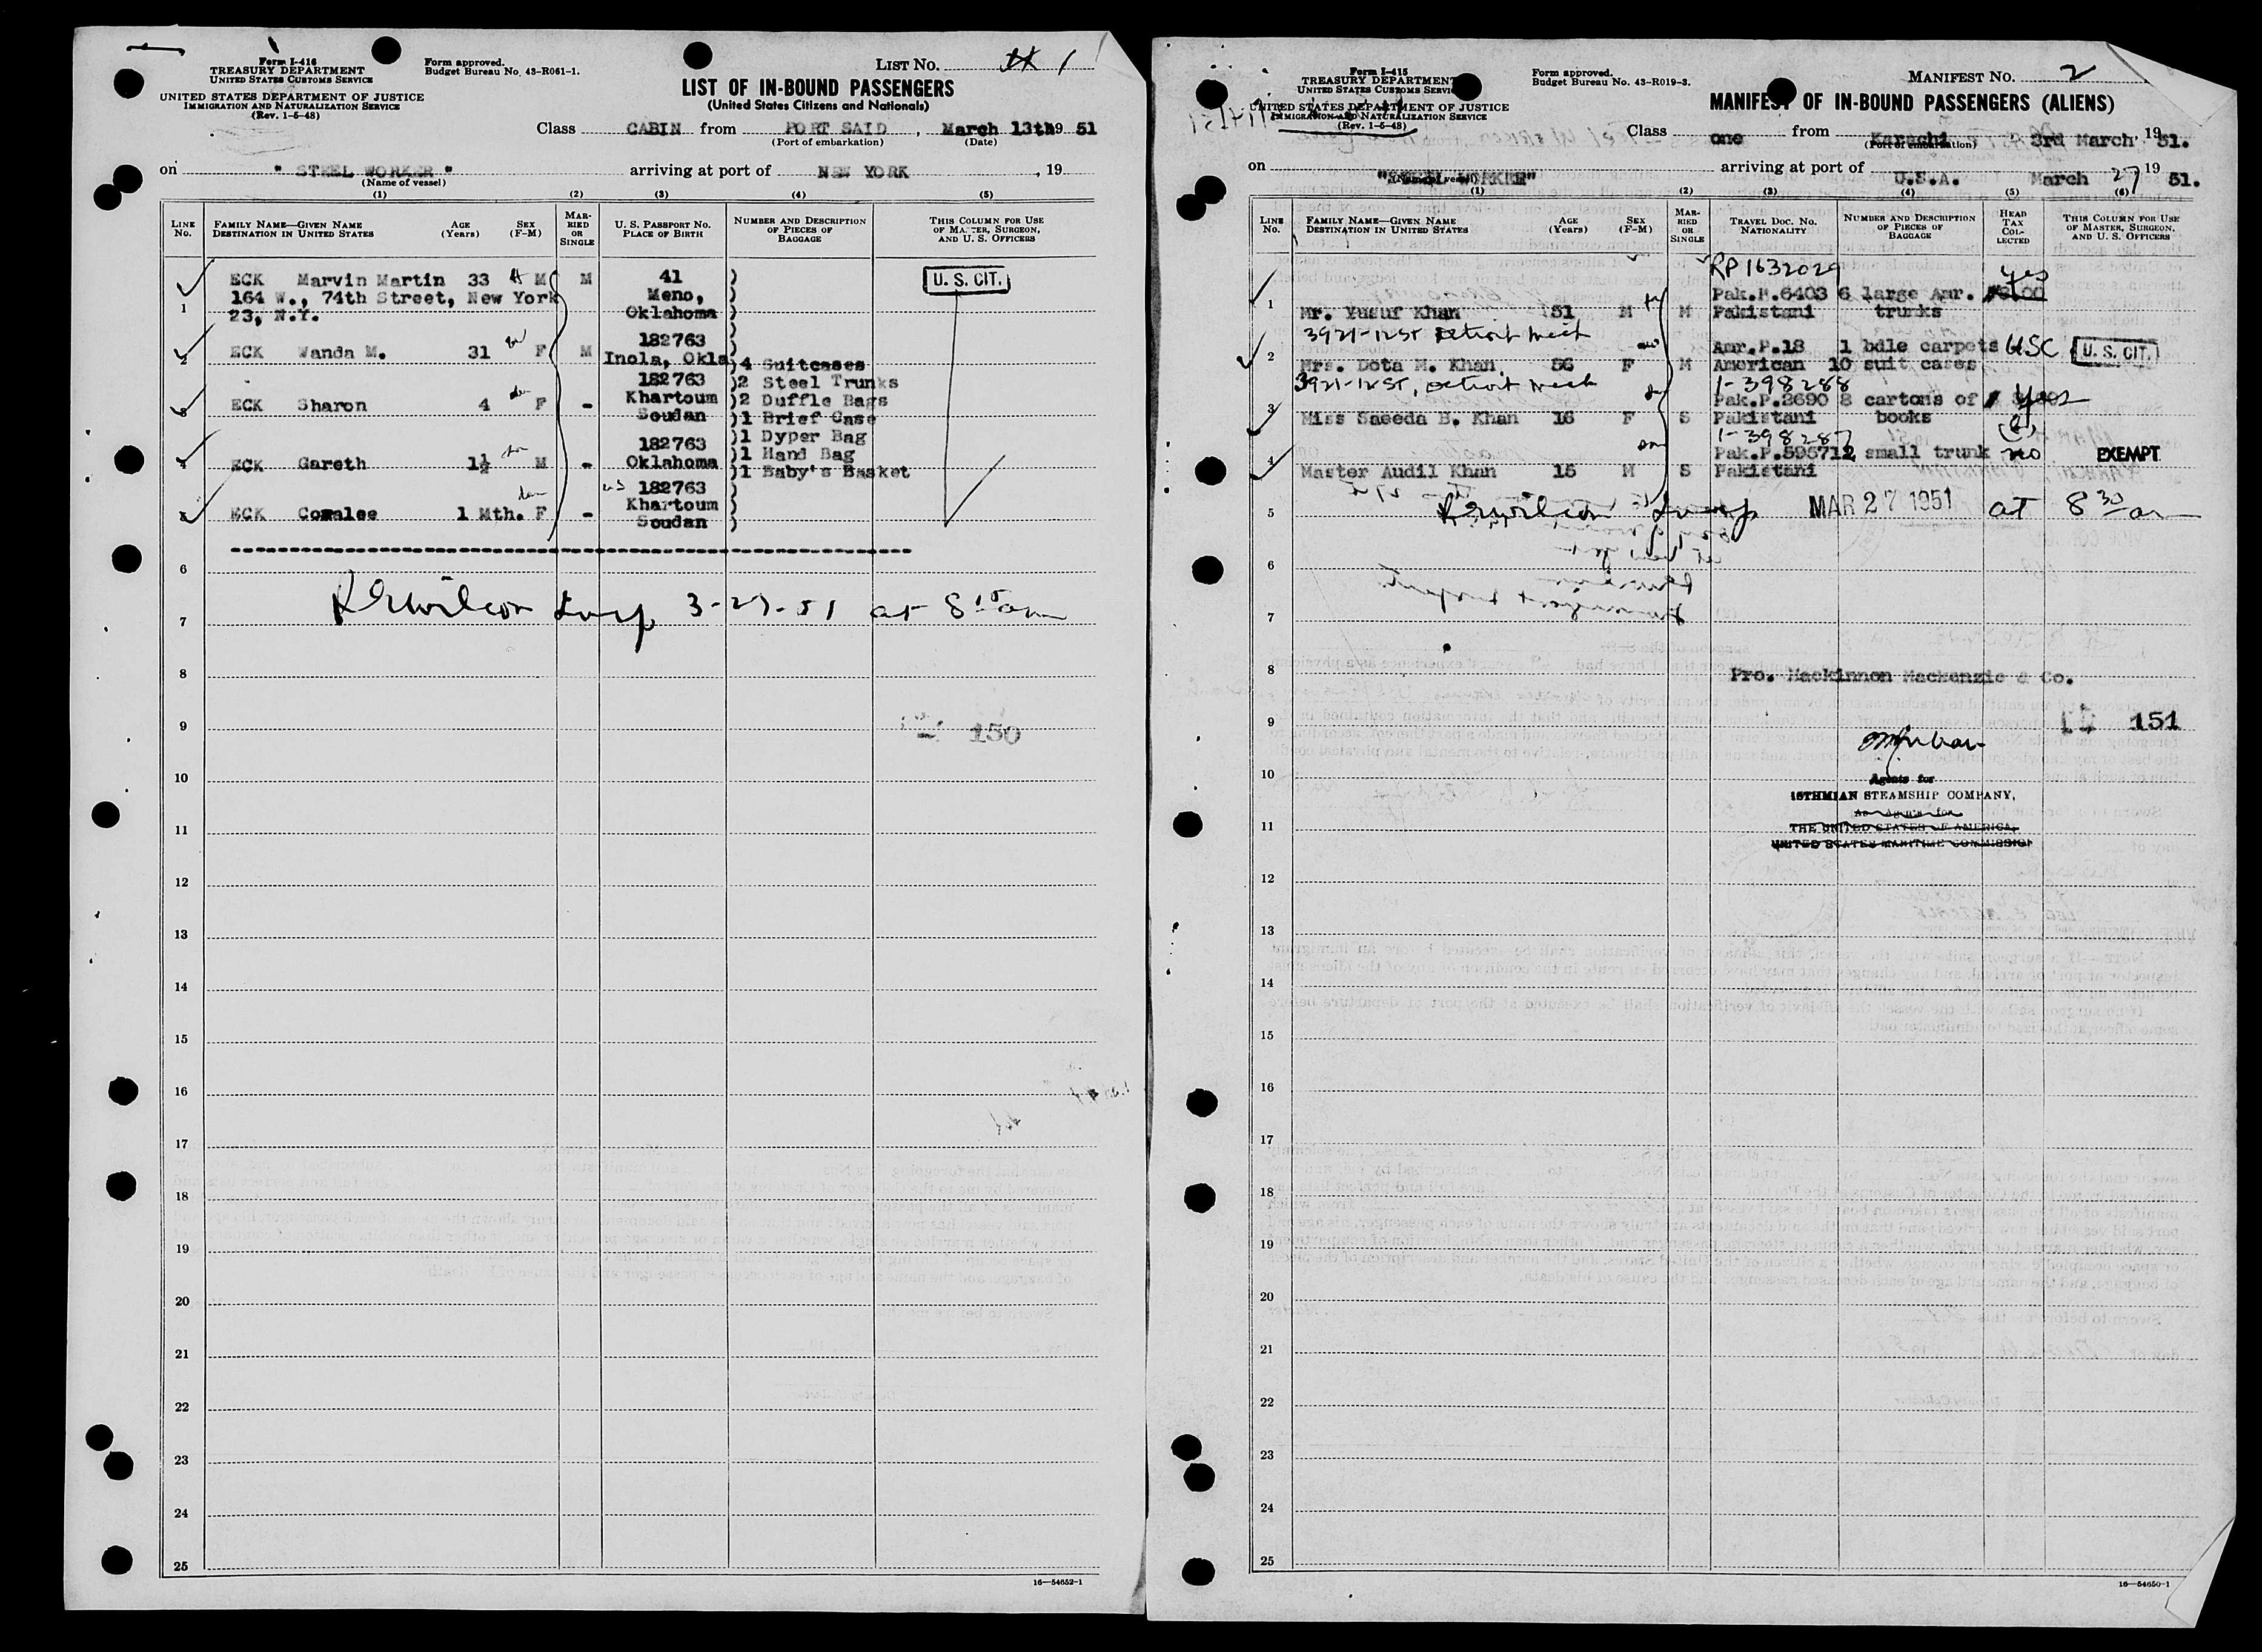 Form I-416
TREASURY DEPARTMENT
UNITED STATES CUSTOMS SERVICE
UNITED STATES DEPARTMENT OF JUSTICE
IMMIGRATION AND NATURALIZATION SERVICE
(Rev. 1-5-48)
Form approved.
Budget Bureau No. 43-R061-1.
LIST No. 1
LIST OF IN-BOUND PASSENGERS
(United States Citizens and Nationals)
Class CABIN from PORT SAID, March 13th 19 51
(Port of embarkation) (Date)
on " STEEL WORKER " arriving at port of NEW YORK, 19
(Name of vessel)
(1) (2) (3) (4) (5)
LINE No. FAMILY NAME—GIVEN NAME DESTINATION IN UNITED STATES AGE (Years) SEX (F-M) MARRIED OR SINGLE U. S. PASSPORT No. PLACE OF BIRTH NUMBER AND DESCRIPTION OF PIECES OF BAGGAGE THIS COLUMN FOR USE OF MASTER, SURGEON, AND U. S. OFFICERS
1 ECK Marvin Martin 33 M M 41 U. S. CIT.
164 W., 74th Street, New York Meno,
23, N.Y. Oklahoma
2 ECK Wanda M. 31 F M 182763 Inola, Okla
4 Suitcases
3 ECK Sharon 4 F - 182763 Khartoum Soudan
2 Steel Trunks
2 Duffle Bags
1 Brief Case
4 ECK Gareth 1½ M - 182763 Oklahoma
1 Dyper Bag
1 Hand Bag
1 Baby's Basket
5 ECK Coralee 1 Mth. F - 182763 Khartoum Soudan
6
7 REWilson Insp 3-27-51 at 8 15 am
8
9 150
10
11
12
13
14
15
16
17
18
19
20
21
22
23
24
25
16—54652-1
Form I-415
TREASURY DEPARTMENT
UNITED STATES CUSTOMS SERVICE
UNITED STATES DEPARTMENT OF JUSTICE
IMMIGRATION AND NATURALIZATION SERVICE
(Rev. 1-5-48)
Form approved.
Budget Bureau No. 43-R019-3.
MANIFEST No. 2
MANIFEST OF IN-BOUND PASSENGERS (ALIENS)
Class one from Karachi 3rd March, 19 51.
(Port of embarkation)
on "STEEL WORKER" arriving at port of U.S.A. March 27 19 51.
(Name of vessel)
(1) (2) (3) (4) (5) (6)
LINE No. FAMILY NAME—GIVEN NAME DESTINATION IN UNITED STATES AGE (Years) SEX (F-M) MARRIED OR SINGLE TRAVEL DOC. NO. NATIONALITY NUMBER AND DESCRIPTION OF PIECES OF BAGGAGE HEAD TAX COLLECTED THIS COLUMN FOR USE OF MASTER, SURGEON, AND U. S. OFFICERS
RP 1632029 yes
Pak.P.6403 6 large Amr.
1 Mr. Yusuf Khan 51 M M Pakistani trunks
3921-12 St Detroit Mich
Amr.P.18 1 bdle carpets USC U. S. CIT.
2 Mrs. Dota M. Khan. 56 F M American 10 suit cases
3921-12 St, Detroit Mich
1-398288
Pak.P.2690 8 cartons of yes
3 Miss Saeeda B. Khan 16 F S Pakistani books
1-398287
Pak.P.595712 small trunk no EXEMPT
4 Master Audil Khan 15 M S Pakistani
5 REWilson Insp MAR 27 1951 at 8 30 am
6
7
8 Pro. Mackinnon Mackenzie & Co.
9 151
10
Agents for
ISTHMIAN STEAMSHIP COMPANY,
11
As Agents for
THE UNITED STATES OF AMERICA,
UNITED STATES MARITIME COMMISSION
12
13
14
15
16
17
18
19
20
21
22
23
24
25
16—54650-1